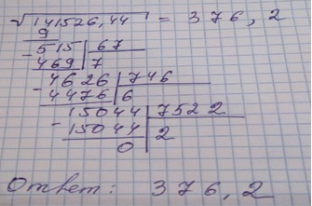 √141526,44 = 376,2
9
-515 | 67
469 | 7
-4626 | 746
4476 | 6
15044 | 7522
-15044 | 2
0
Ответ: 376,2